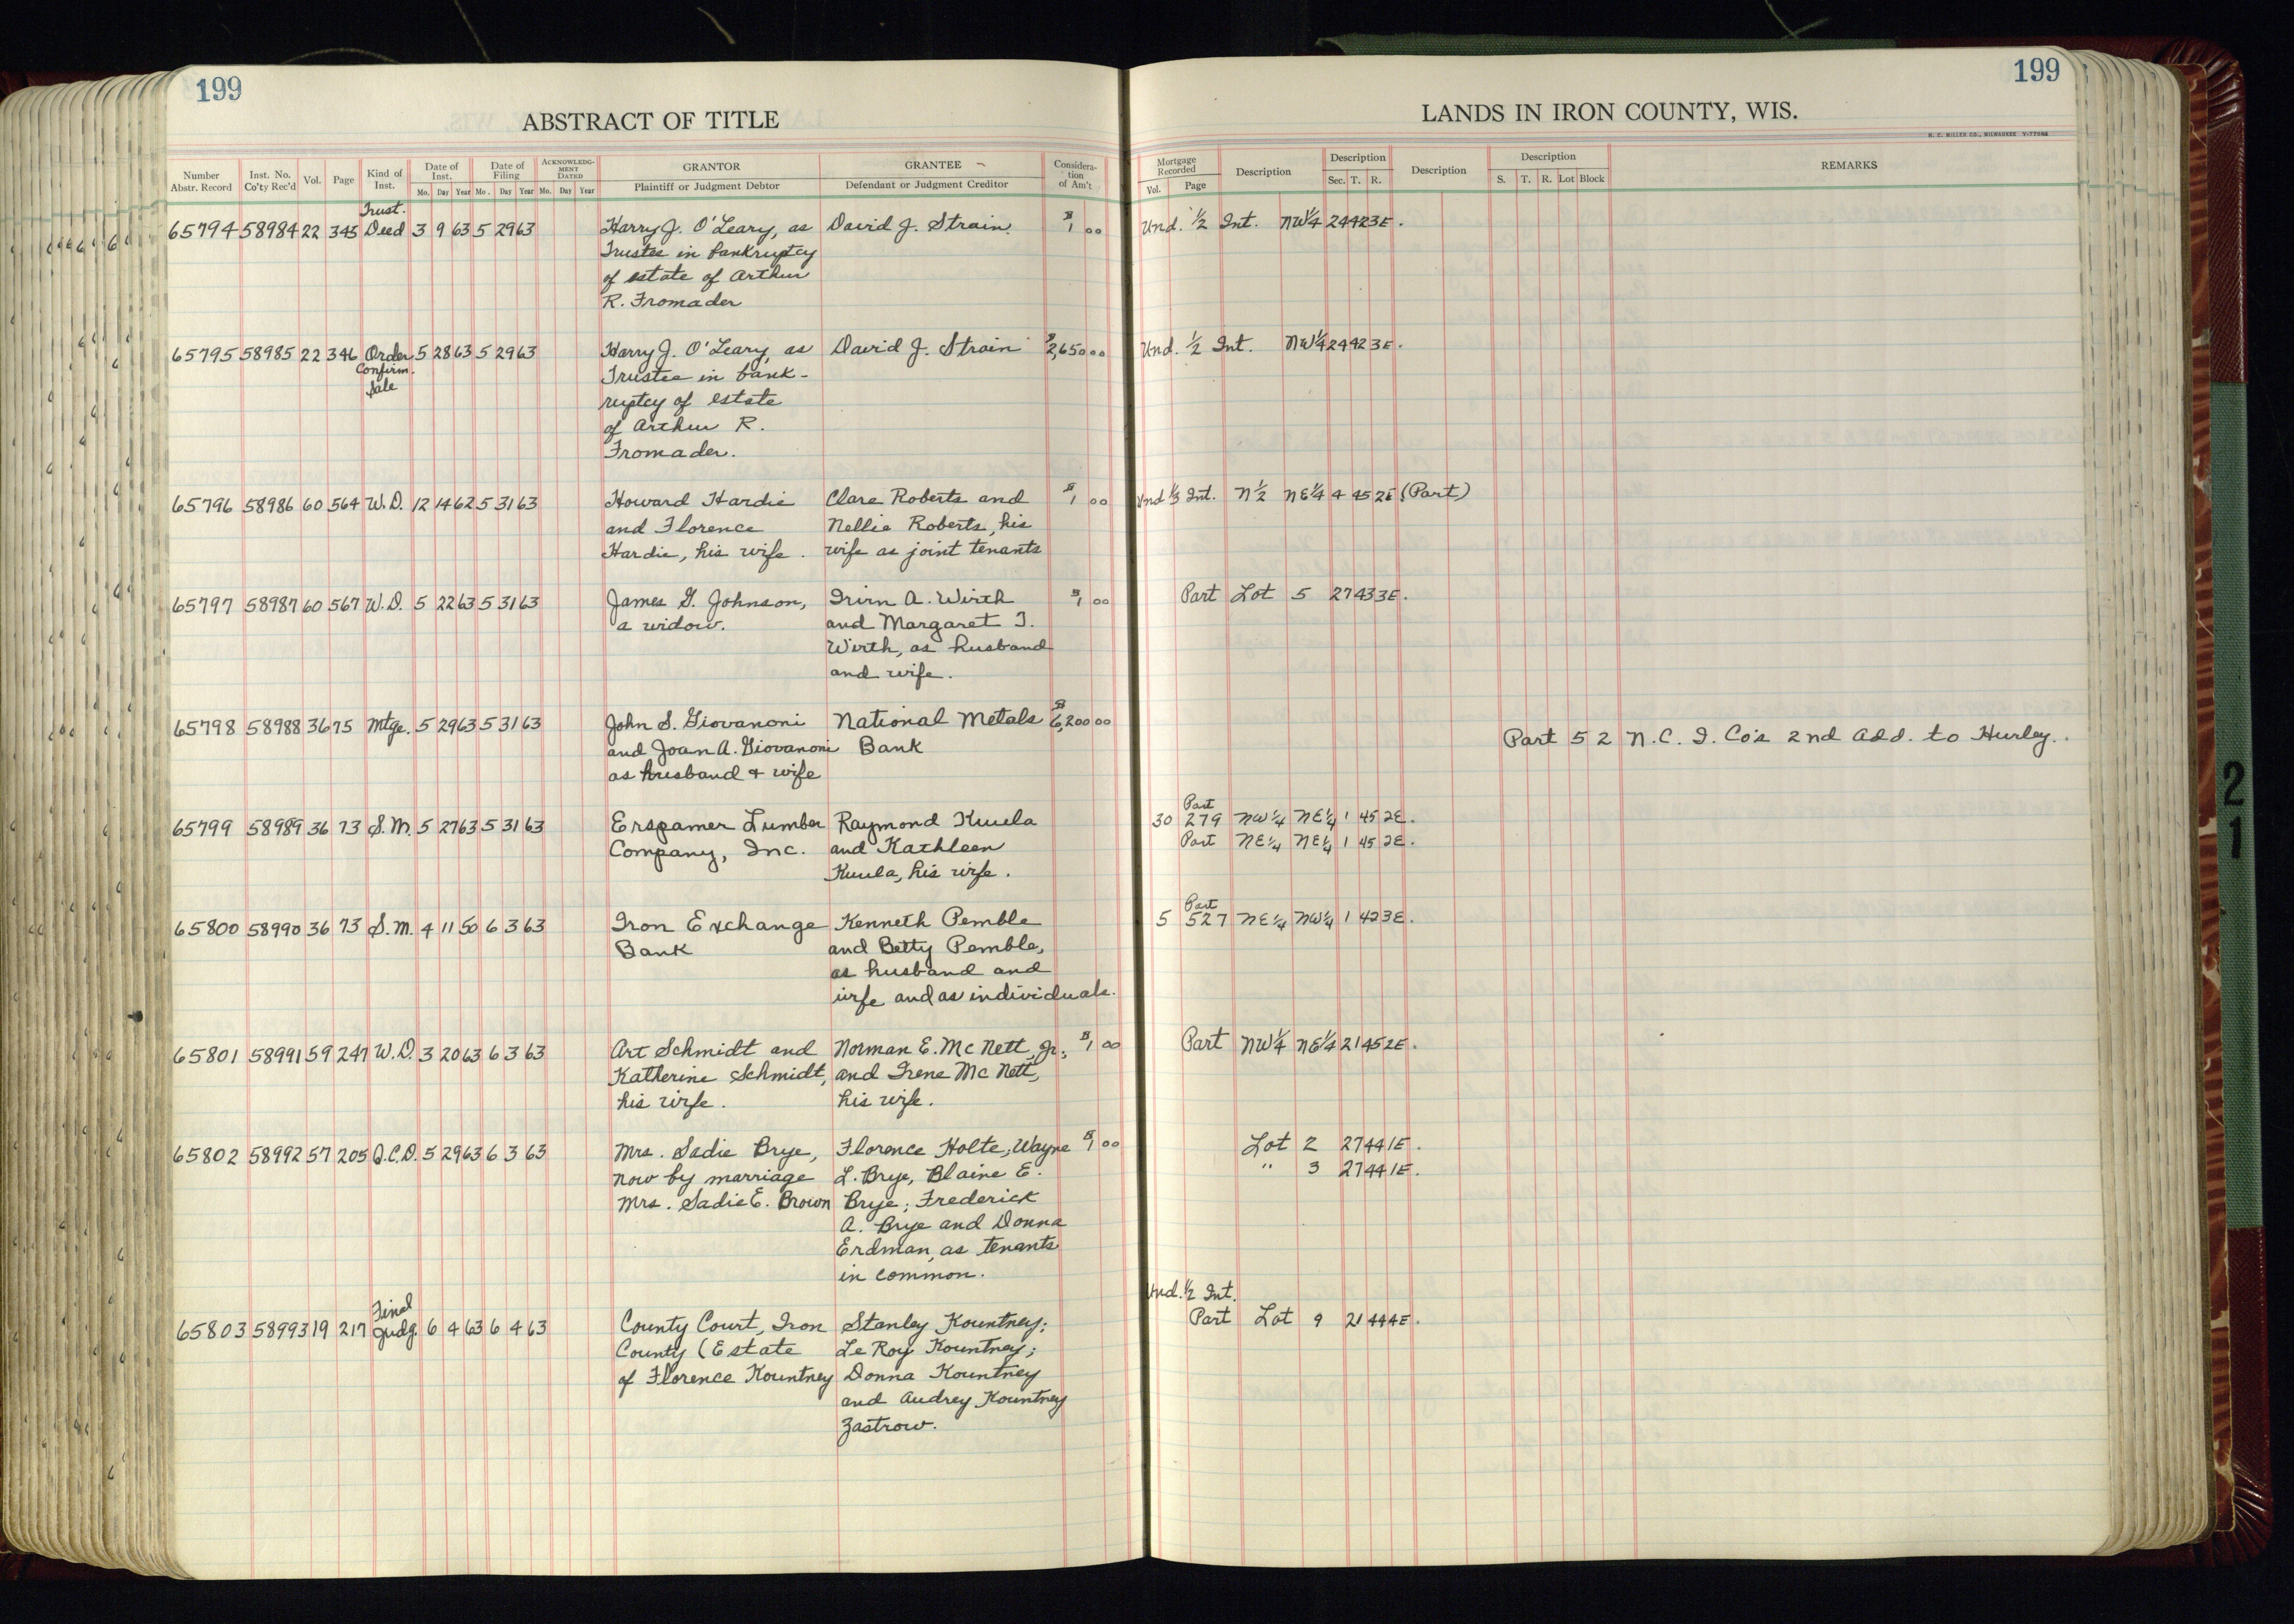 199
ABSTRACT OF TITLE
Number Abstr. Record | Inst. No. Co'ty Rec'd | Vol. | Page | Kind of Inst. | Date of Inst. Mo. Day Year | Date of Filing Mo. Day Year | ACKNOWLEDGMENT DATED Mo. Day Year | GRANTOR Plaintiff or Judgment Debtor | GRANTEE Defendant or Judgment Creditor | Consideration of Am't
65794 58984 22 345 Trust. Deed 3 9 63 5 29 63 Harry J. O'Leary, as David J. Strain. $1 00
Trustee in bankruptcy
of estate of Arthur
R. Fromader
65795 58985 22 346 Order 5 28 63 5 29 63 Harry J. O'Leary, as David J. Strain $2,650 00
Confirm. Trustee in bank-
Sale ruptcy of estate
of Arthur R.
Fromader.
65796 58986 60 564 W.D. 12 14 62 5 31 63 Howard Hardie Clare Roberts and $1 00
and Florence Nellie Roberts, his
Hardie, his wife. wife as joint tenants
65797 58987 60 567 W.D. 5 22 63 5 31 63 James G. Johnson, Irvin A. Wirth $1 00
a widow. and Margaret I.
Wirth, as husband
and wife.
65798 58988 36 75 Mtge. 5 29 63 5 31 63 John S. Giovanoni National Metals $6,200 00
and Joan A. Giovanoni Bank
as husband & wife
65799 58989 36 73 S.M. 5 27 63 5 31 63 Erspamer Lumber Raymond Kuula
Company, Inc. and Kathleen
Kuula, his wife.
65800 58990 36 73 S.M. 4 11 50 6 3 63 Iron Exchange Kenneth Pemble
Bank and Betty Pemble,
as husband and
wife and as individuals.
65801 58991 59 247 W.D. 3 20 63 6 3 63 Art Schmidt and Norman E. McNett, Jr., $1 00
Katherine Schmidt, and Irene McNett,
his wife. his wife.
65802 58992 57 205 Q.C.D. 5 29 63 6 3 63 Mrs. Sadie Brye, Florence Holte, Wayne $1 00
now by marriage L. Brye, Blaine E.
Mrs. Sadie E. Brown Brye; Frederick
A. Brye and Donna
Erdman, as tenants
in common.
65803 58993 19 217 Final Judg. 6 4 63 6 4 63 County Court, Iron Stanley Kountney;
County (Estate Le Roy Kountney;
of Florence Kountney Donna Kountney
and Audrey Kountney
Zastrow.
199
LANDS IN IRON COUNTY, WIS.
H. C. MILLER CO., MILWAUKEE Y-77066
Mortgage Recorded Vol. Page | Description | Description Sec. T. R. | Description | Description S. T. R. Lot Block | REMARKS
Und. 1/2 Int. NW1/4 24 42 3E.
Und. 1/2 Int. NW1/4 24 42 3E.
Und 1/3 Int. N1/2 NE1/4 4 45 2E. (Part)
Part Lot 5 27 43 3E.
Part 5 2 N.C.I. Co's 2nd Add. to Hurley.
Part
30 279 NW1/4 NE1/4 1 45 2E.
Part NE1/4 NE1/4 1 45 2E.
Part
5 527 NE1/4 NW1/4 1 42 3E.
Part NW1/4 NE1/4 21 45 2E.
Lot 2 27 44 1E.
" 3 27 44 1E.
Und. 1/2 Int.
Part Lot 9 21 44 4E.
21